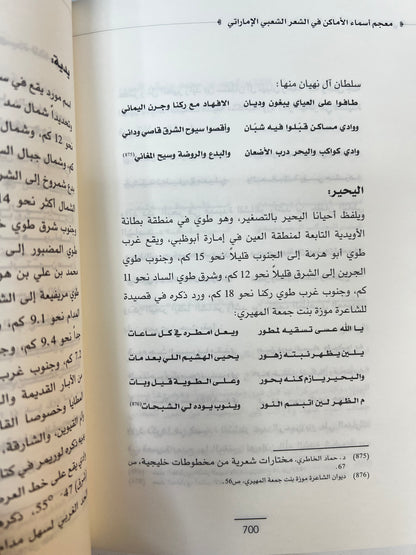 معجم أسماء الأماكن في الشعر الشعبي الإماراتي
سلطان آل نهيان منها:
طافوا على العياي يبغون وديان الافهاد مع ركنا وجرن اليماني
ووادي مساكن قبلوا فيه شبان وأقصوا سيوح الشرق قاصي وداني
وادي كواكب والبحر درب الأضعان والبدع والروضة وسيح المغاني (875)
اليحير:
ويلفظ أحيانا اليحير بالتصغير، وهو طوي في منطقة بطانة
الأويدية التابعة لمنطقة العين في إمارة أبوظبي، ويقع غرب
طوي أبو هرمة إلى الجنوب قليلاً نحو 15 كم، وجنوب طوي
الجرين إلى الشرق قليلاً نحو 12 كم، وشرق طوي الساد نحو 11
كم، وجنوب غرب طوي ركنا نحو 18 كم، ورد ذكره في قصيدة
للشاعرة موزة بنت جمعة المهيري:
يا الله عسى تسقيه لمطور ويعل امطره في كل ساعات
يلين يظهر نبته زهور يحيى الهشيم اللي بعد مات
واليحير يازم كنه بحور وعلى الطوية قيل وبات
م الظهر لين اتبسم النور وينوب يوده لي الشبحات (876)
(875) د. حماد الخاطري، مختارات شعرية من مخطوطات خليجية، ص
67.
(876) ديوان الشاعرة موزة بنت جمعة المهيري، ص56.
700
بدية:
اسم مورد يقع في
وتحديداً شمال سد
نحو 12 كم، وشمال
وشمال جبال الس
سيح شمروخ إلى الشر
الشمال أكثر نحو 14
وجنوب شرق طوي
طوي المضبور إلى
محمد بن علي بن هو
طوي مريفيعة إلى الش
المدام نحو 9.1 كم،
حمد نحو 9.4 كم، و
7.2 كم، وجنوب غرب
من الآبار القديمة وال